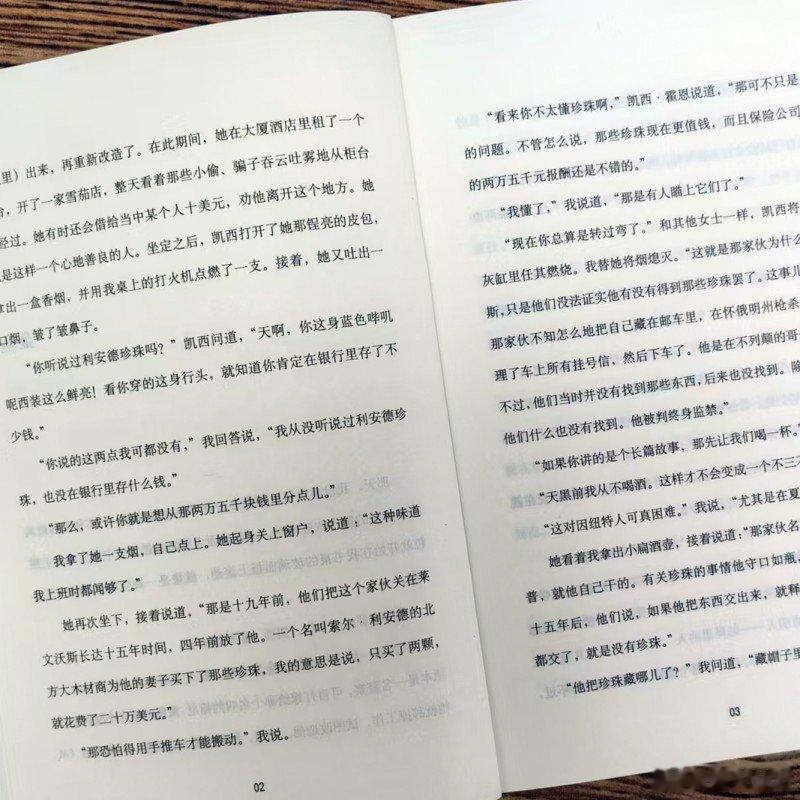 里）出来，再重新改造了。在此期间，她在大厦酒店里租了一个
台，开了一家雪茄店，整天看着那些小偷、骗子吞云吐雾地从柜台
经过。她有时还会借给当中某个人十美元，劝他离开这个地方。她
是这样一个心地善良的人。坐定之后，凯西打开了她那锃亮的皮包，
拿出一盒香烟，并用我桌上的打火机点燃了一支。接着，她又吐出一
口烟，皱了皱鼻子。
“你听说过利安德珍珠吗？”凯西问道，“天啊，你这身蓝色哔叽
呢西装这么鲜亮！看你穿的这身行头，就知道你肯定在银行里存了不
少钱。”
“你说的这两点我可都没有，”我回答说，“我从没听说过利安德珍
珠，也没在银行里存什么钱。”
“那么，或许你就是想从那两万五千块钱里分点儿。”
我拿了她一支烟，自己点上。她起身关上窗户，说道：“这种味道
我上班时都闻够了。”
她再次坐下，接着说道，“那是十九年前，他们把这个家伙关在莱
文沃斯长达十五年时间，四年前放了他。一个名叫索尔·利安德的北
方大木材商为他的妻子买下了那些珍珠，我的意思是说，只买了两颗，
就花费了二十万美元。”
“那恐怕得用手推车才能搬动。”我说。
02
“看来你不太懂珍珠啊，”凯西·霍恩说道，“那可不只是
的问题。不管怎么说，那些珍珠现在更值钱，而且保险公司
的两万五千元报酬还是不错的。”
“我懂了，”我说道，“那是有人瞄上它们了。”
“现在你总算是转过弯了。”和其他女士一样，凯西将
灰缸里任其燃烧。我替她将烟熄灭。“这就是那家伙为什么
斯，只是他们没法证实他有没有得到那些珍珠罢了。这事儿
那家伙不知怎么地把自己藏在邮车里，在怀俄明州枪杀
理了车上所有挂号信，然后下车了。他是在不列颠的哥
不过，他们当时并没有找到那些东西，后来也没找到。除
他们什么也没有找到。他被判终身监禁。”
“如果你讲的是个长篇故事，那先让我们喝一杯。”
“天黑前我从不喝酒。这样才不会变成一个不三不
“这对因纽特人可真困难。”我说，“尤其是在夏
她看着我拿出小扁酒壶，接着说道：“那家伙名
普，就他自己干的。有关珍珠的事情他守口如瓶，
十五年后，他们说，如果他把东西交出来，就释
都交了，就是没有珍珠。”
“他把珍珠藏哪儿了？”我问道，“藏帽子里
03